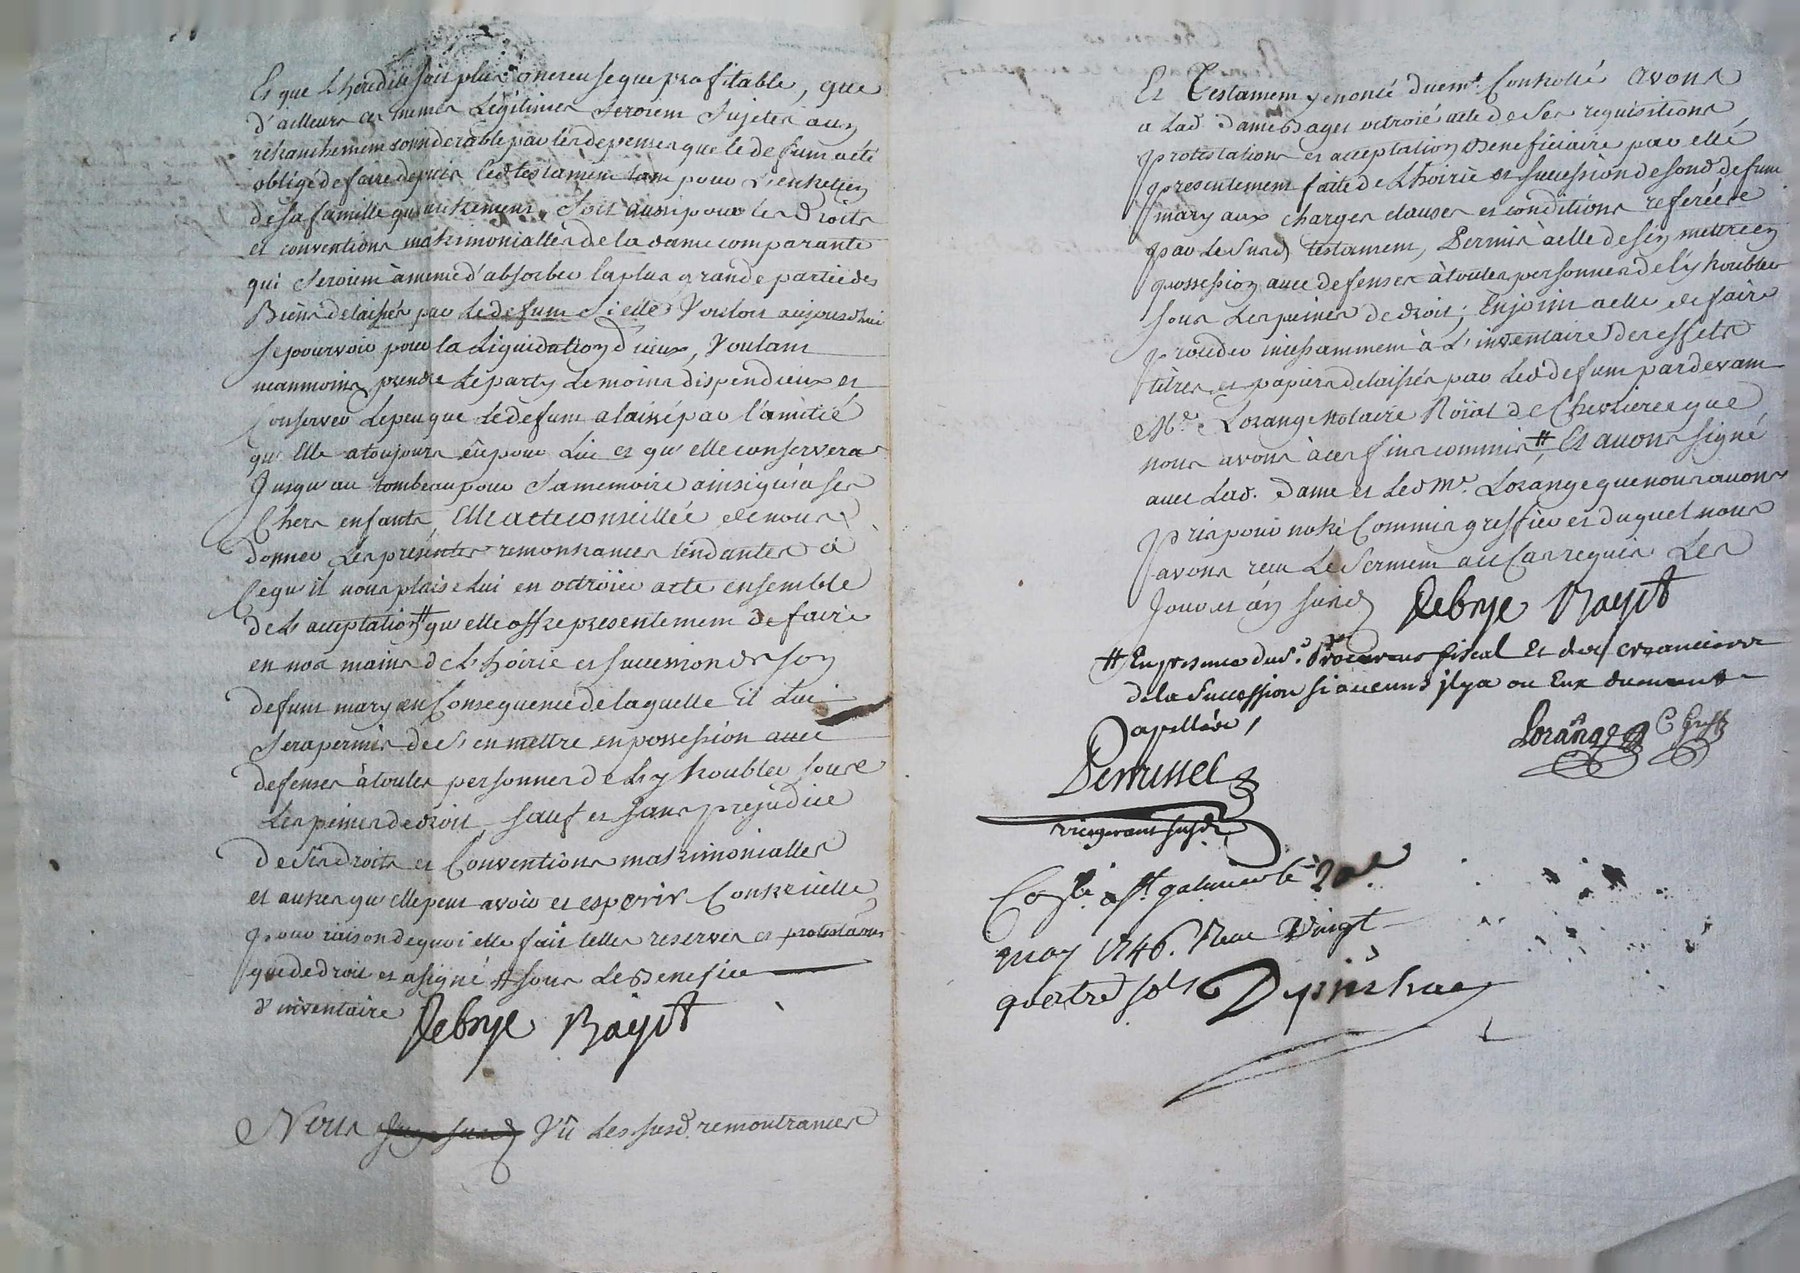 Et que L'heredité soit plus onereuse que profitable, que
d'ailleurs ces memes Légitimes seroient sujetes au
retranchement considerable par les depenses que le defunt a été
obligé de faire depuis led testament tant pour L'entretien
de sa famille qu'autrement, soit aussi pour les droits
et conventions matrimonialles de la dame comparante
qui seroient a meme d'absorber la plus grande partie des
Biens delaissés par Le defunt si elle Vouloit aujourdhui
se pourvoir pour la Liquidation d'iceux, Voulant
neanmoins prendre Le party Le moins dispendieux et
conserver Le peu que Le defunt a laissé par l'amitié
qu'Elle a toujours eû pour Lui et qu'elle conservera
Jusqu'au tombeau pour sa memoire ainsi qu'a ses
Chers enfants, Elle a eté conseillée de nous
donner Les présentes remontrances tendantes a
Ce qu'il nous plaise Lui en octroïer acte ensemble
de L'acceptation # qu'elle offre presentement de faire
en nos mains de L'hoirie et succession de son
defunt mary en Consequence de laquelle il Lui
sera permis de s'en mettre en possession avec
defenses à toutes personnes de L'y troubler sous
Les peines de droit, sauf et sans prejudice
De ses droits et Conventions matrimonialles
et autres qu'elle peut avoir et esperer Contre icelle
pour raison de quoi elle fait telles reserves et protestations
que de droit et a signé # sous Le Benefice
d'inventaire Debrye Bayit
Nous Juge susd Vû Les susd. remontrances
Et Testament y enoncé duemt. Controllé avons
a Lad. dame Dages octroié acte de ses requisitions
protestations et acceptation Beneficiaire par elle
presentement faite de L'hoirie et succession de sond. defunt
mary aux charges clauses et conditions referées
par Le susd testament, Permis à elle de s'en mettre en
possession avec defenses à toutes personnes de l'y troubler
sous Les peines de droit; Enjoint a elle de faire
proceder incessamment à L'inventaire des effets
titres et papiers delaissés par Led defunt pardevant
Me. Lorange Notaire Roïal de Chevrieres que
nous avons à ces fins commis # Et avons signé
avec Lad. dame et Led Me. Lorange que nous avons
pris pour notre Commis greffier et duquel nous
avons recu Le serment au Cas requis Les
Jour et an susd Debrye Bayit
# En presence du sr. Procureur fiscal Et des creanciers
de la Succession si aucuns il y a ou Eux duement
apellés,
Lorange C. Greff.
Perrussel
vicegerant susd.
Conlé. à st. galmier le 20e
may 1746. Receu Vingt
quatre sols